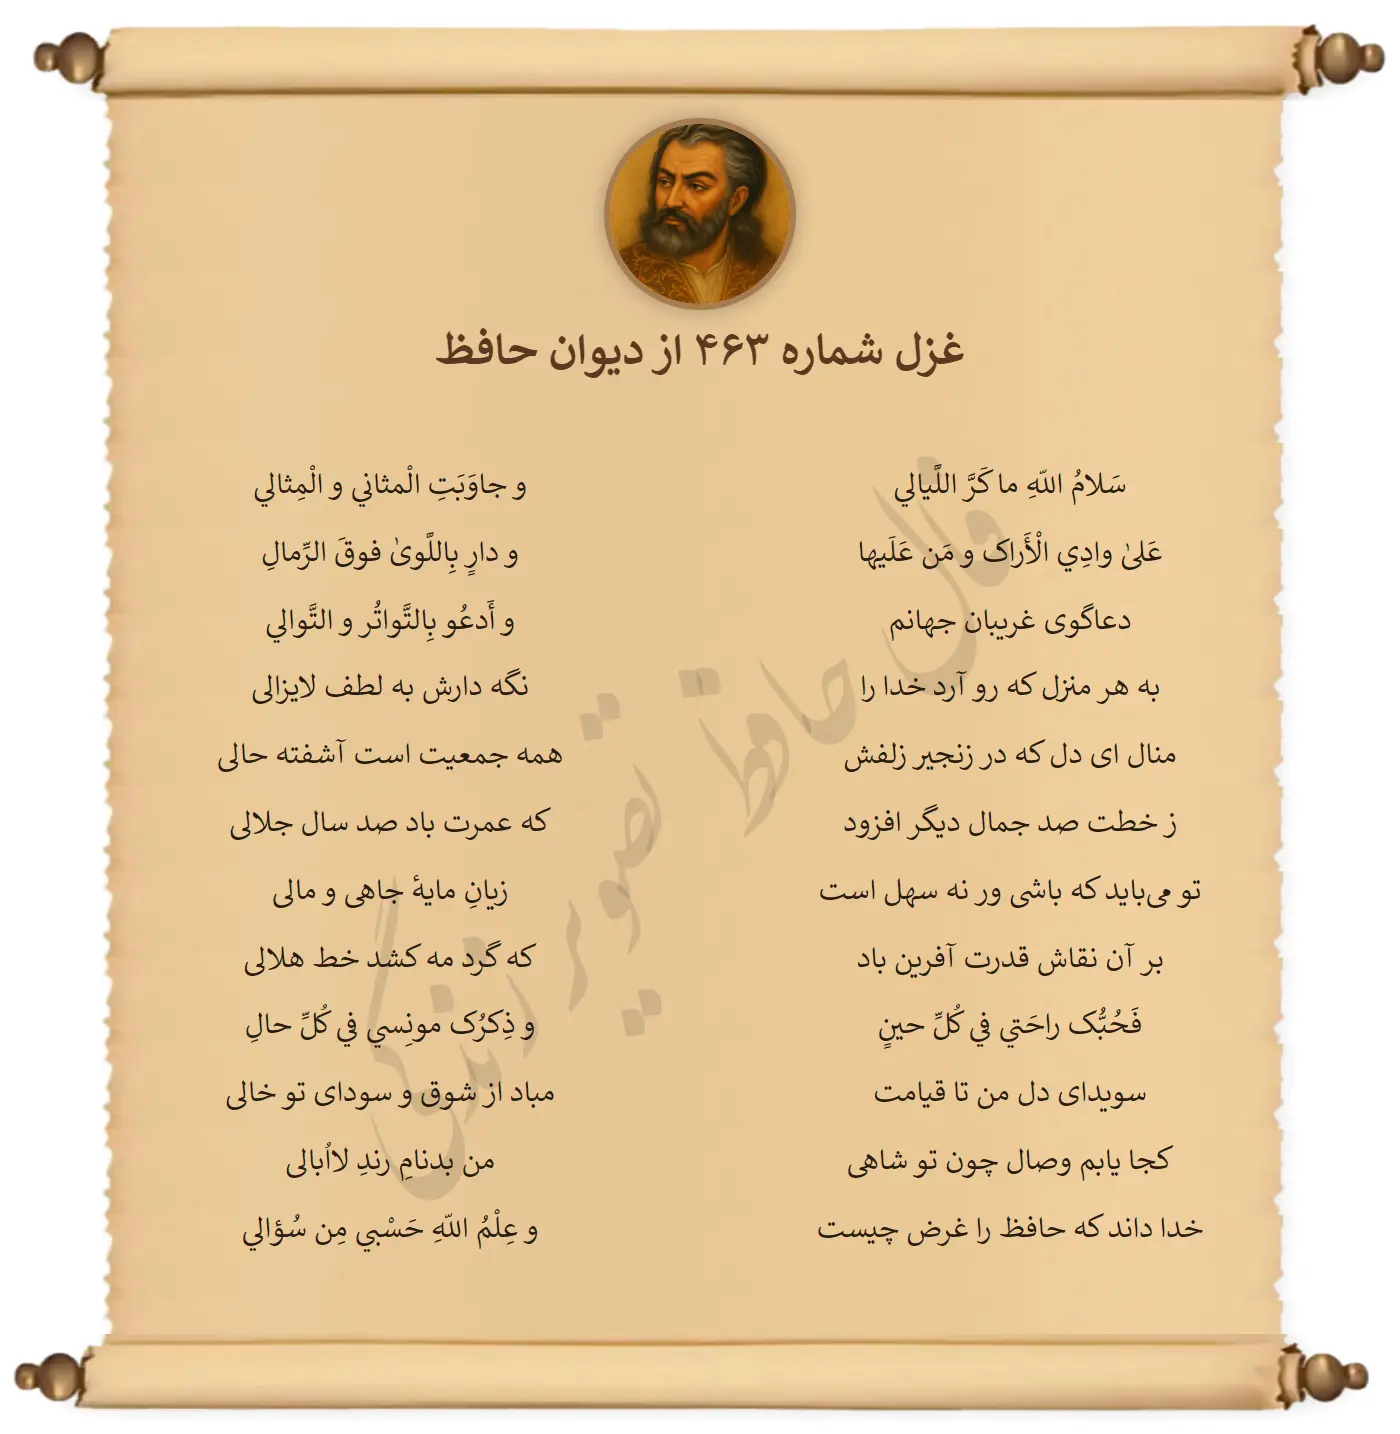 غزل شماره ۴۶۳ از دیوان حافظ
سَلامُ اللّهِ ما کَرَّ اللَّیالي
و جاوَبَتِ الْمثاني و الْمِثالي
عَلیٰ وادِي الْأَراک و مَن عَلَیها
و دارٍ بِاللَّویٰ فوقَ الرِّمالِ
دعاگوی غریبان جهانم
و أَدعُو بِالتَّواتُر و التَّوالي
به هر منزل که رو آرد خدا را
نگه دارش به لطف لایزالی
منال ای دل که در زنجیر زلفش
همه جمعیت است آشفته حالی
ز خطت صد جمال دیگر افزود
که عمرت باد صد سال جلالی
تو می‌باید که باشی ور نه سهل است
زیانِ مایهٔ جاهی و مالی
بر آن نقاش قدرت آفرین باد
که گرد مه کشد خط هلالی
فَحُبُّک راحَتي في کُلِّ حینٍ
و ذِکرُک مونِسي في کُلِّ حالِ
سویدای دل من تا قیامت
مباد از شوق و سودای تو خالی
کجا یابم وصال چون تو شاهی
من بدنامِ رندِ لااُبالی
خدا داند که حافظ را غرض چیست
و عِلْمُ اللّهِ حَسْبي مِن سُؤالي
فال حافظ تصویر زندگی